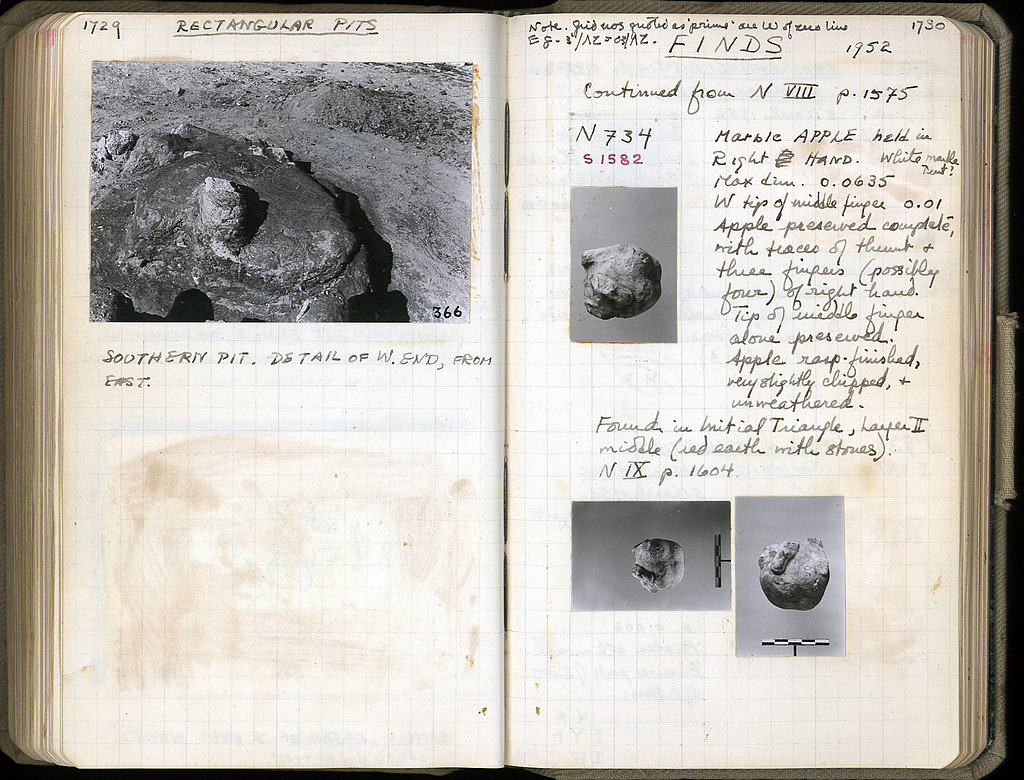 1729
RECTANGULAR PITS
366
SOUTHERN PIT. DETAIL OF W. END, FROM
EAST.
Note. Grid nos quoted as 'prime' are W of zero line
E.g. 3'/ΛΖ = 03/ΛΖ.
1730
FINDS
1952
Continued from N VIII p. 1575
N 734
S 1582
Marble APPLE held in
Right HAND. White marble
Pent?
Max dim. 0.0635
W tip of middle finger 0.01
Apple preserved complete,
with traces of thumb +
three fingers (possibly
four) of right hand.
Tip of middle finger
alone preserved.
Apple rasp-finished,
very slightly chipped, +
unweathered.
Found in Initial Triangle, Layer II
middle (red earth with stones).
N IX p. 1604.